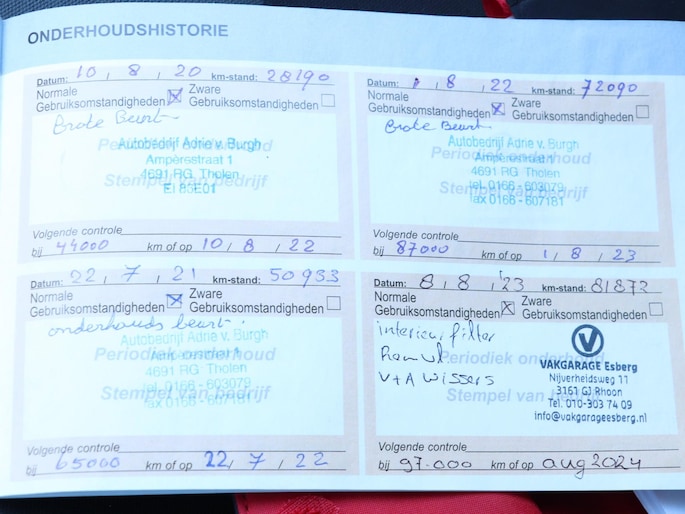 ONDERHOUDSHISTORIE
Datum: 10, 8, 20 km-stand: 28190
Normale Gebruiksomstandigheden Zware Gebruiksomstandigheden
Grote Beurt
Periodiek onderhoud
Stempel van bedrijf
Autobedrijf Adrie v. Burgh
Ampèrestraat 1
4691 RG Tholen
EI 85E01
Volgende controle
bij 44000 km of op 10, 8, 22
Datum: 22, 7, 21 km-stand: 50933
Normale Gebruiksomstandigheden Zware Gebruiksomstandigheden
onderhouds beurt.
Periodiek onderhoud
Stempel van bedrijf
Autobedrijf Adrie v. Burgh
Ampèrestraat 1
4691 RG Tholen
tel. 0166-603079
fax 0166-607181
Volgende controle
bij 65000 km of op 22, 7, 22
Datum: 1, 8, 22 km-stand: 72090
Normale Gebruiksomstandigheden Zware Gebruiksomstandigheden
Grote Beurt
Periodiek onderhoud
Stempel van bedrijf
Autobedrijf Adrie v. Burgh
Ampèrestraat 1
4691 RG Tholen
tel. 0166-603079
fax 0166-607181
Volgende controle
bij 87000 km of op 1, 8, 23
Datum: 8, 8, 23 km-stand: 81873
Normale Gebruiksomstandigheden Zware Gebruiksomstandigheden
interieurfilter
V+A Wissers
Periodiek onderhoud
Stempel van bedrijf
VAKGARAGE Esberg
Nijverheidsweg 11
3161 GJ Rhoon
Tel. 010-303 74 09
info@vakgarageesberg.nl
Volgende controle
bij 97.000 km of op aug 2024